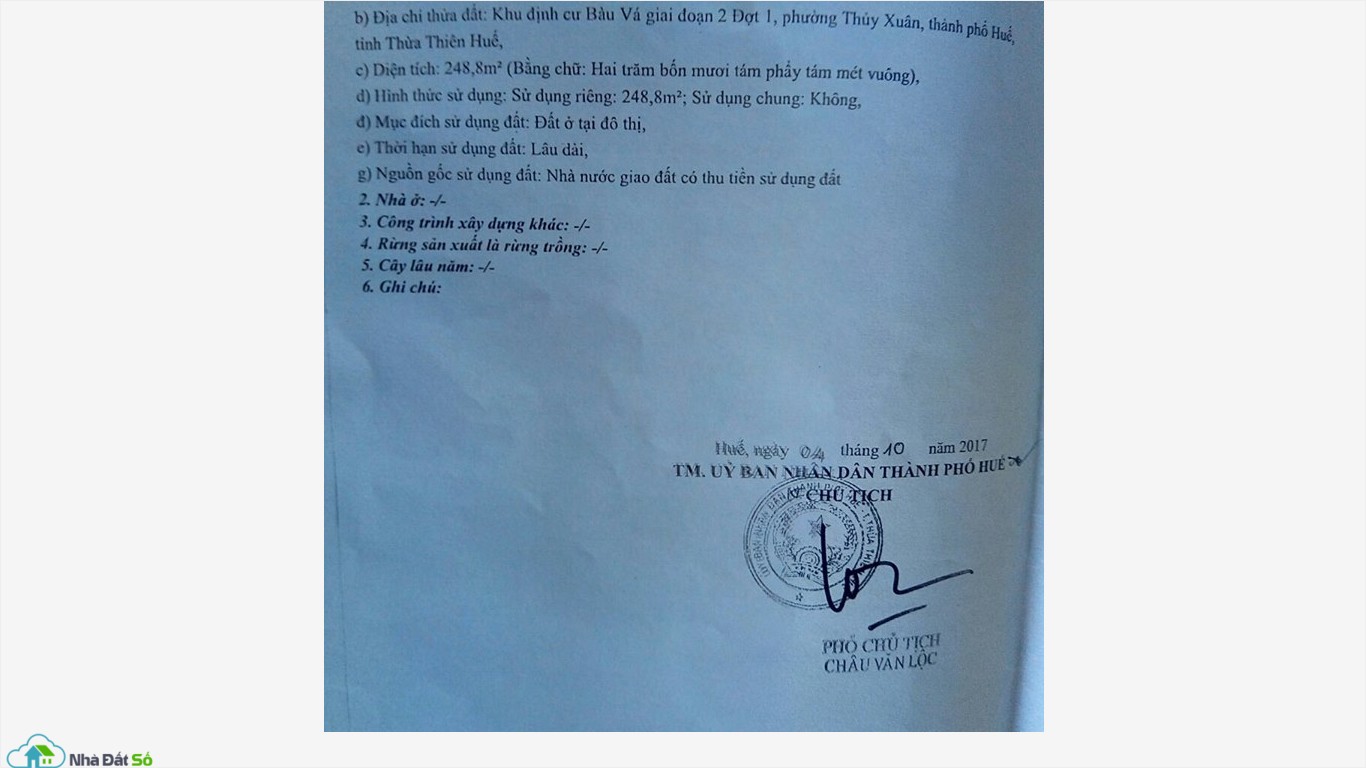 b) Địa chỉ thửa đất: Khu định cư Bàu Vá giai đoạn 2 Đợt 1, phường Thủy Xuân, thành phố Huế,
tỉnh Thừa Thiên Huế,
c) Diện tích: 248,8m² (Bằng chữ: Hai trăm bốn mươi tám phẩy tám mét vuông),
d) Hình thức sử dụng: Sử dụng riêng: 248,8m²; Sử dụng chung: Không,
đ) Mục đích sử dụng đất: Đất ở tại đô thị,
e) Thời hạn sử dụng đất: Lâu dài,
g) Nguồn gốc sử dụng đất: Nhà nước giao đất có thu tiền sử dụng đất
2. Nhà ở: -/-
3. Công trình xây dựng khác: -/-
4. Rừng sản xuất là rừng trồng: -/-
5. Cây lâu năm: -/-
6. Ghi chú:
Huế, ngày 04 tháng 10 năm 2017
TM. UỶ BAN NHÂN DÂN THÀNH PHỐ HUẾ
CHỦ TỊCH
PHÓ CHỦ TỊCH
CHÂU VĂN LỘC
Nhà Đất Số